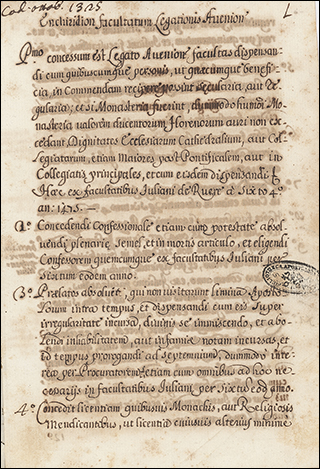 Enchiridion facultatum Legationis Avenion
Pmo concessum est Legato Avenione facultas dispensan-
di cum quibuscumque personis, ut quaecumque benefi-
cia in Commendam recipere possint secularia, aut Re-
gularia; et si Monasteria fuerint, dummodo humoi Mo-
nasteria valorem ducentorum Florenorum auri non ex-
cedant, Dignitates Ecclesiarum Cathedralium, aut Col-
legiatarum, etiam Maiores post Pontificalem, aut in
Collegiatis principales, et cum eisdem dispensandi
Haec ex facultatibus Juliani de Ruere a Sixto 4º
an: 1475. —
1º Concedendi Confessionale etiam cum potestate absol-
vendi plenarie semel, et in mortis articulo, et eligendi
Confessorem quemcumque ex facultatibus Juliani per
Sixtum eodem anno.
3º Praelatos absolvet, qui non visitarunt limina Aposto-
lorum intra tempus, et dispensandi cum eis super
irregularitate incursa, divinis se immiscendo, et abo-
lendi inhabilitatem, aut infamiae notam incursas, et
id tempus prorogandi ad septennium, dummodo inte-
rea per Procuratorem etiam cum omnibus ad hoc ne-
cessarijs in facultatibus Juliani per Sixtum eod. anno.
4º Concedit licentiam quibusvis Monachis, aut Religiosis
Mendicantibus, ut licentia cuiusvis alterius minime